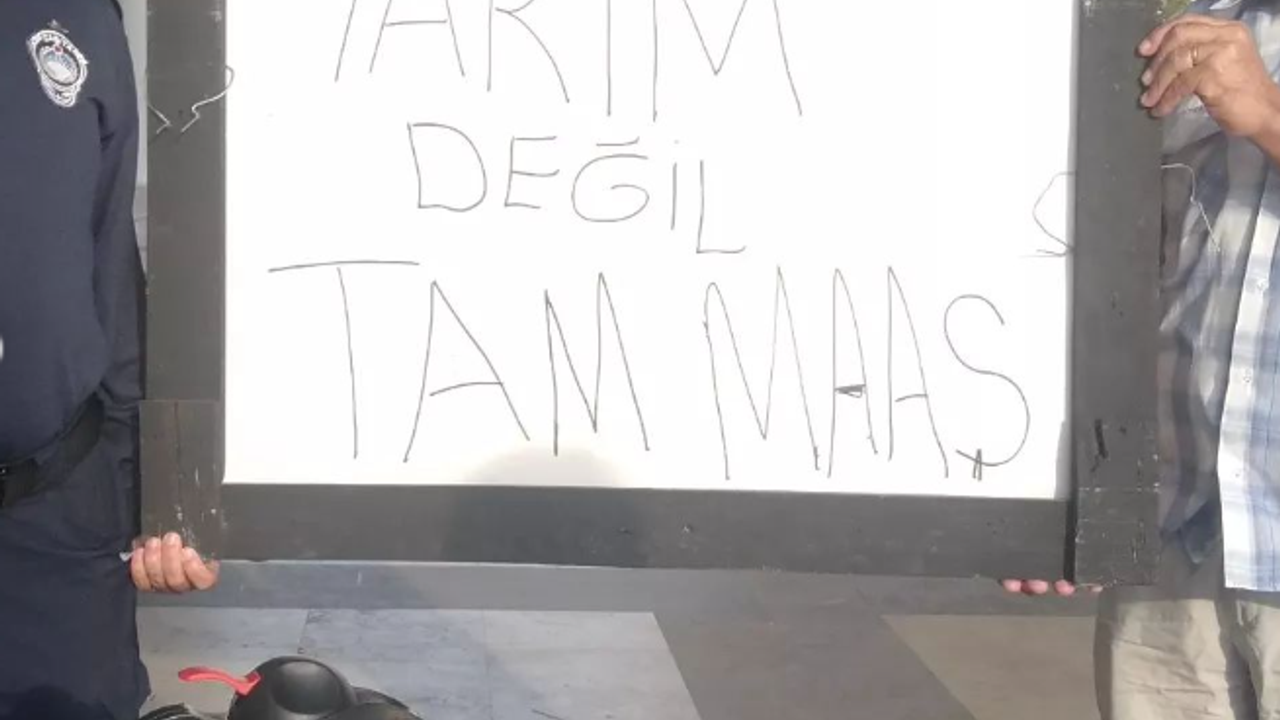 YARIM
DEĞİL
TAM MAAŞ